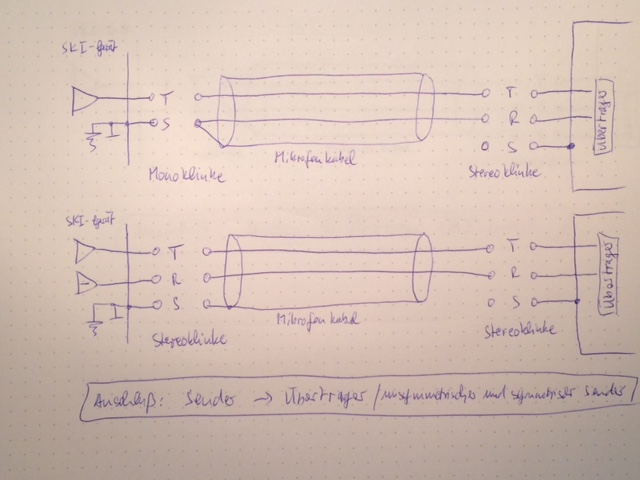 SKI-Gerät
T T R S
T
R
S
S
Übertrager
Monoklinke
Mikrofonkabel
Stereoklinke
SKI-Gerät
T
T
R
R
S
S
Übertrager
Stereoklinke
Mikrofonkabel
Stereoklinke
Anschluß: Sender → Übertrager / unsymmetrischer und symmetrischer Sender